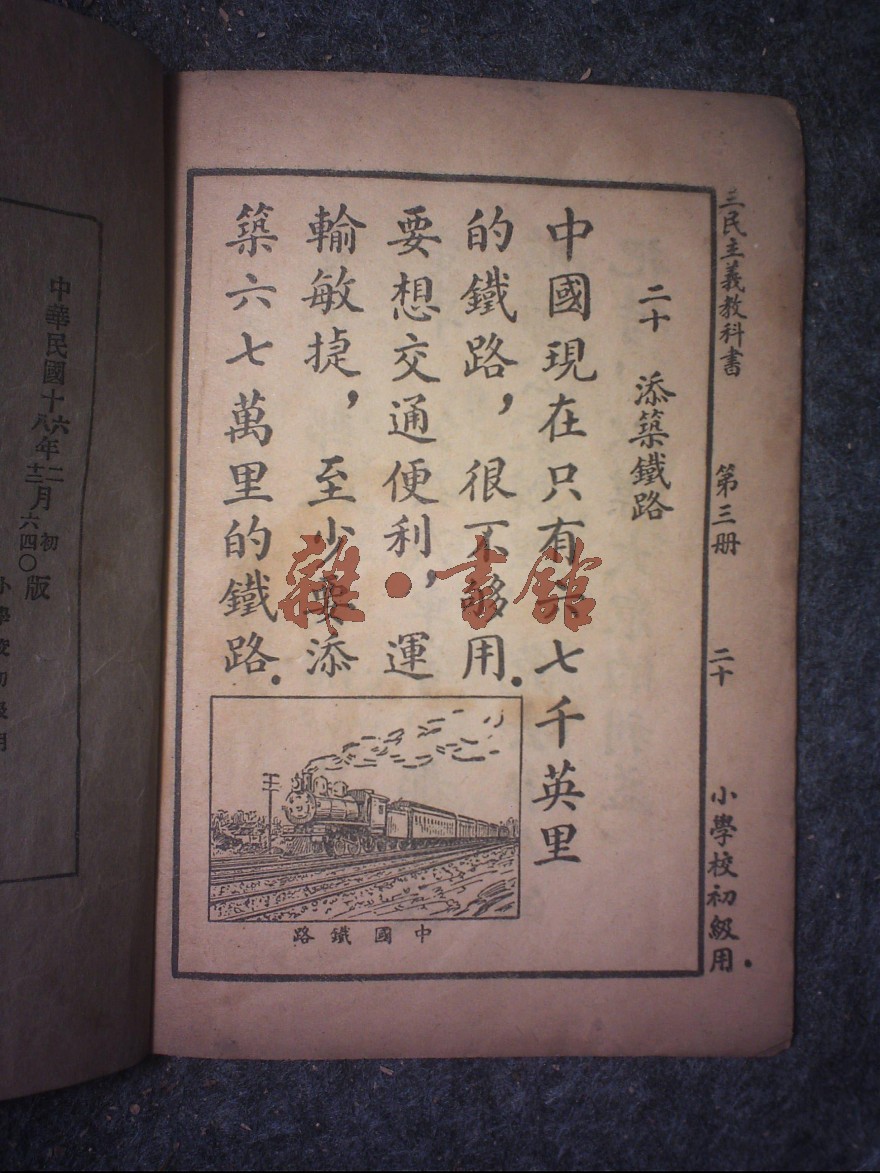 三民主義教科書 第三册 二十 小學校初級用
二十 添築鐵路
中國現在只有六七千英里
的鐵路，很不够用．
要想交通便利，運
輸敏捷，至少要添
築六七萬里的鐵路．
路鐵國中
雜·書館
中華民國十六年二月初版
十八 十二 六四〇
小學校初級用